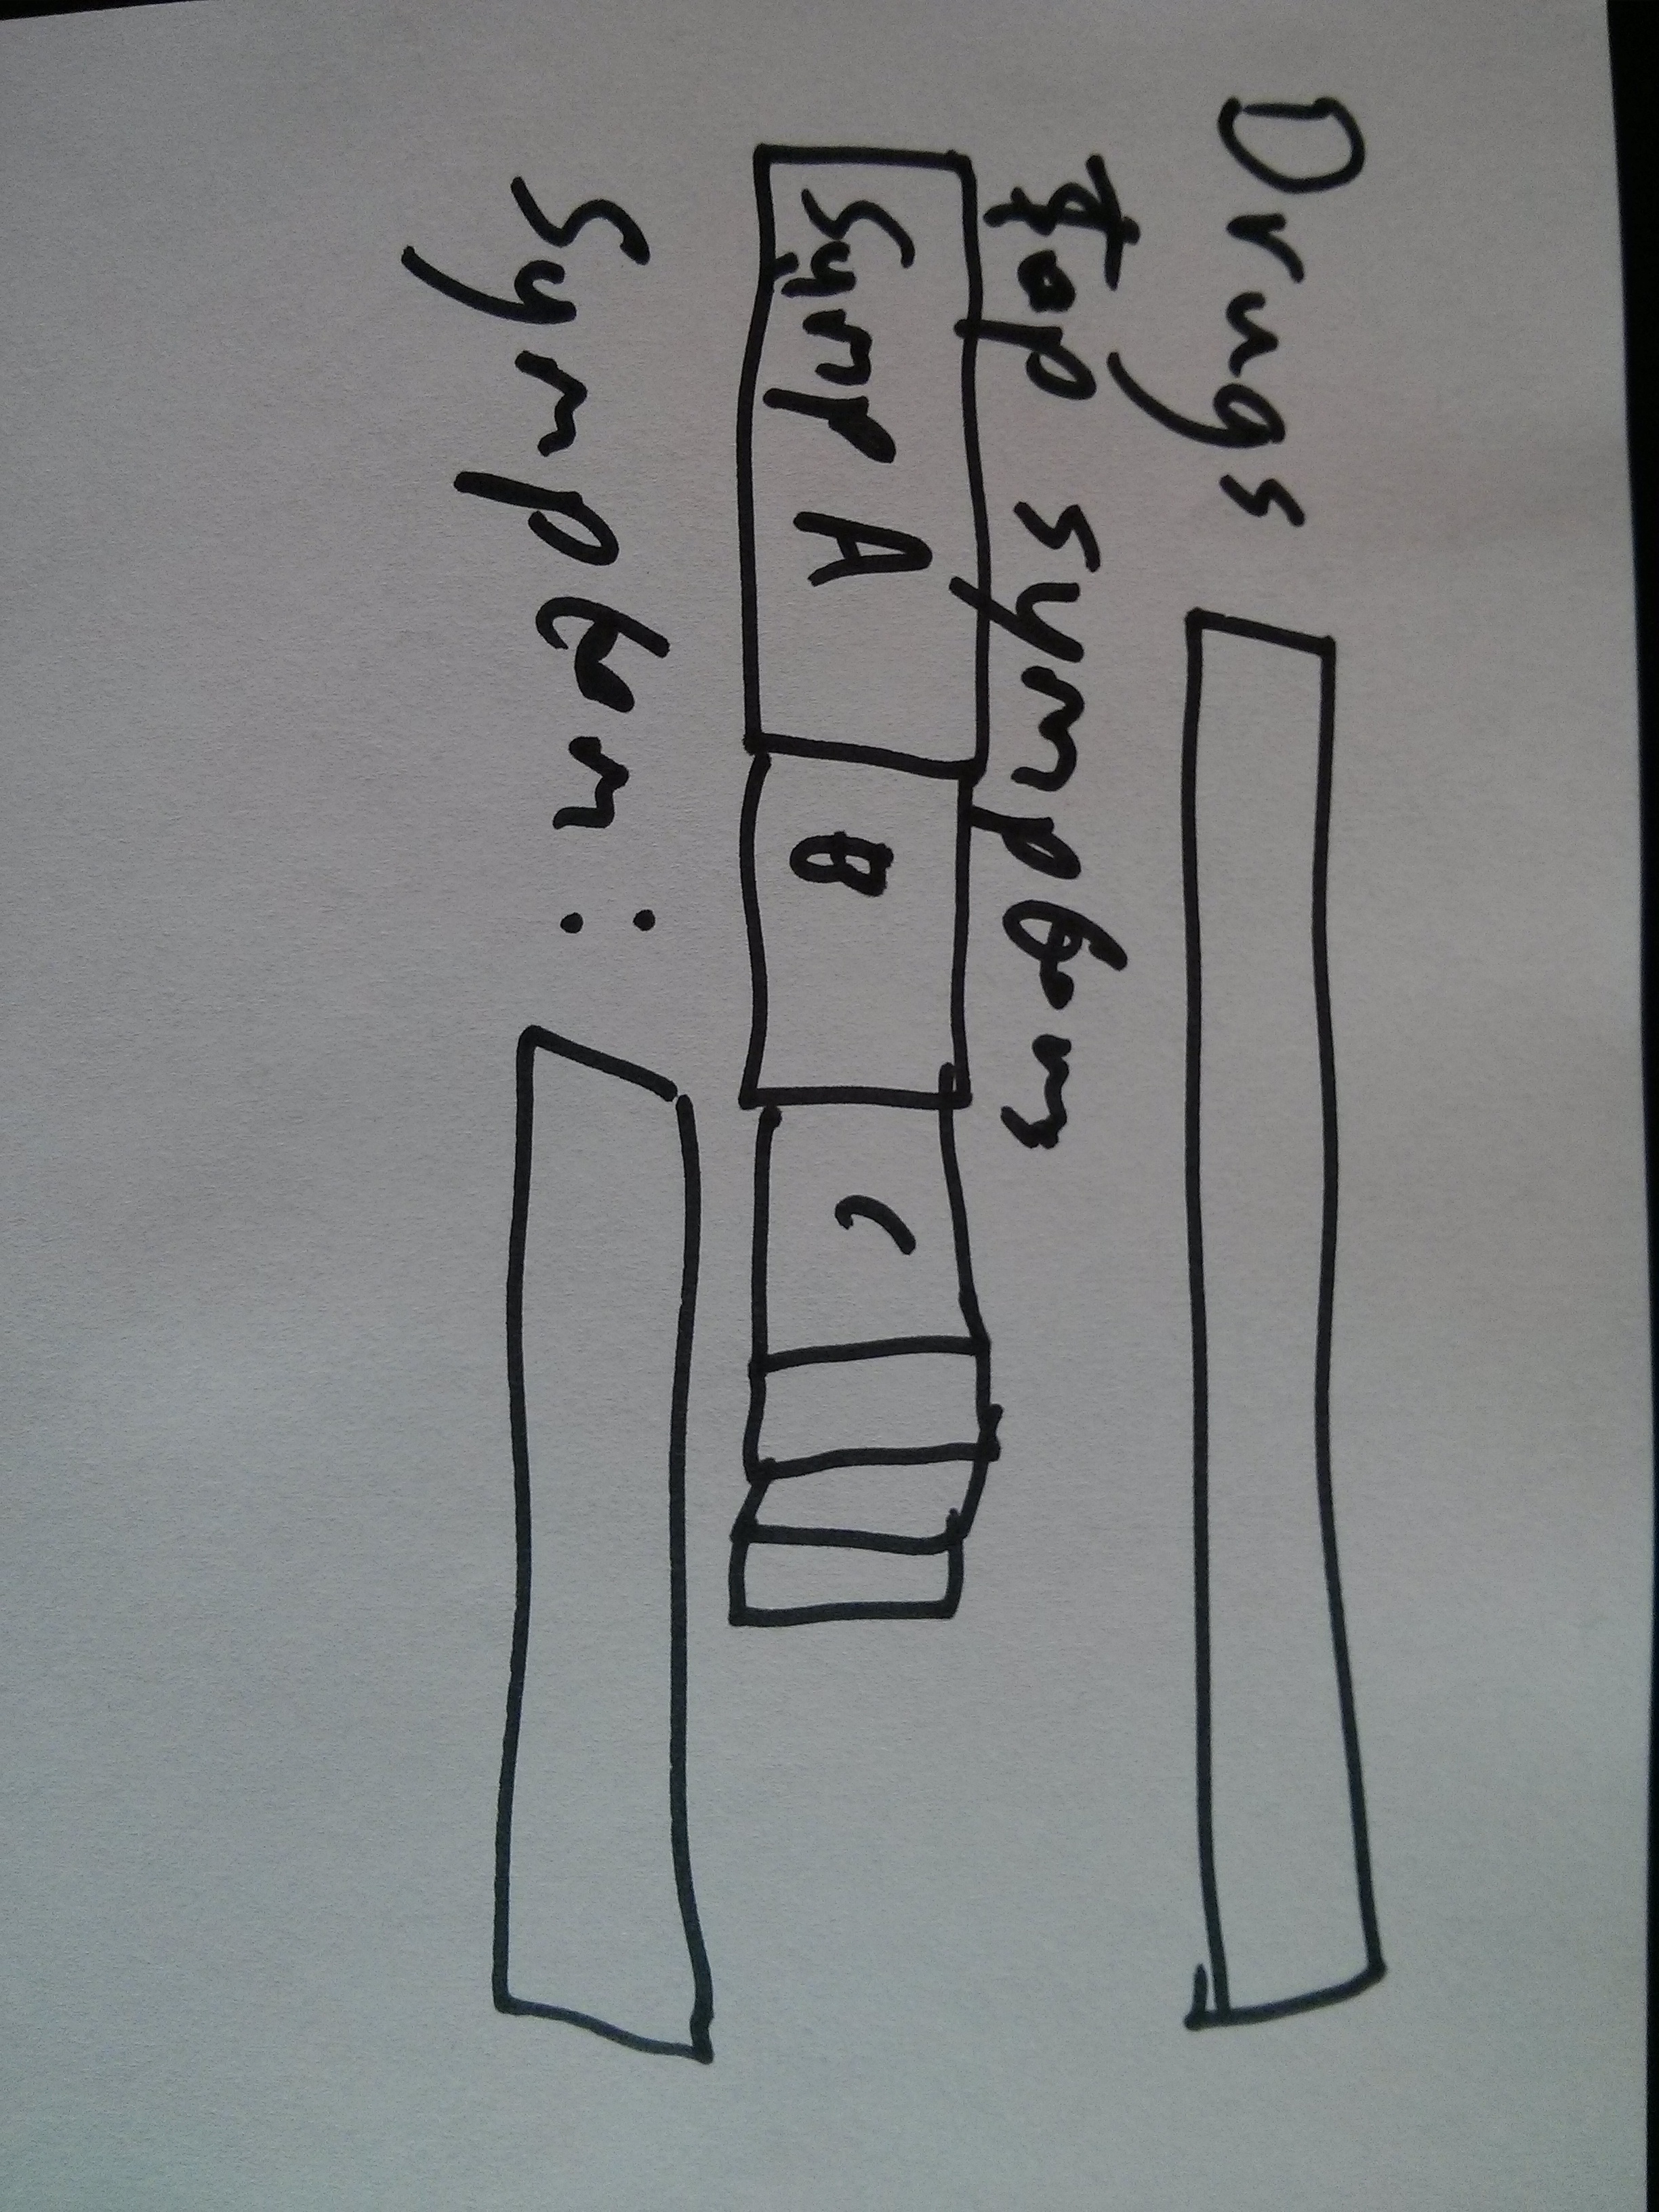 Drugs
Top symptoms
Symp A B C
Symptom: